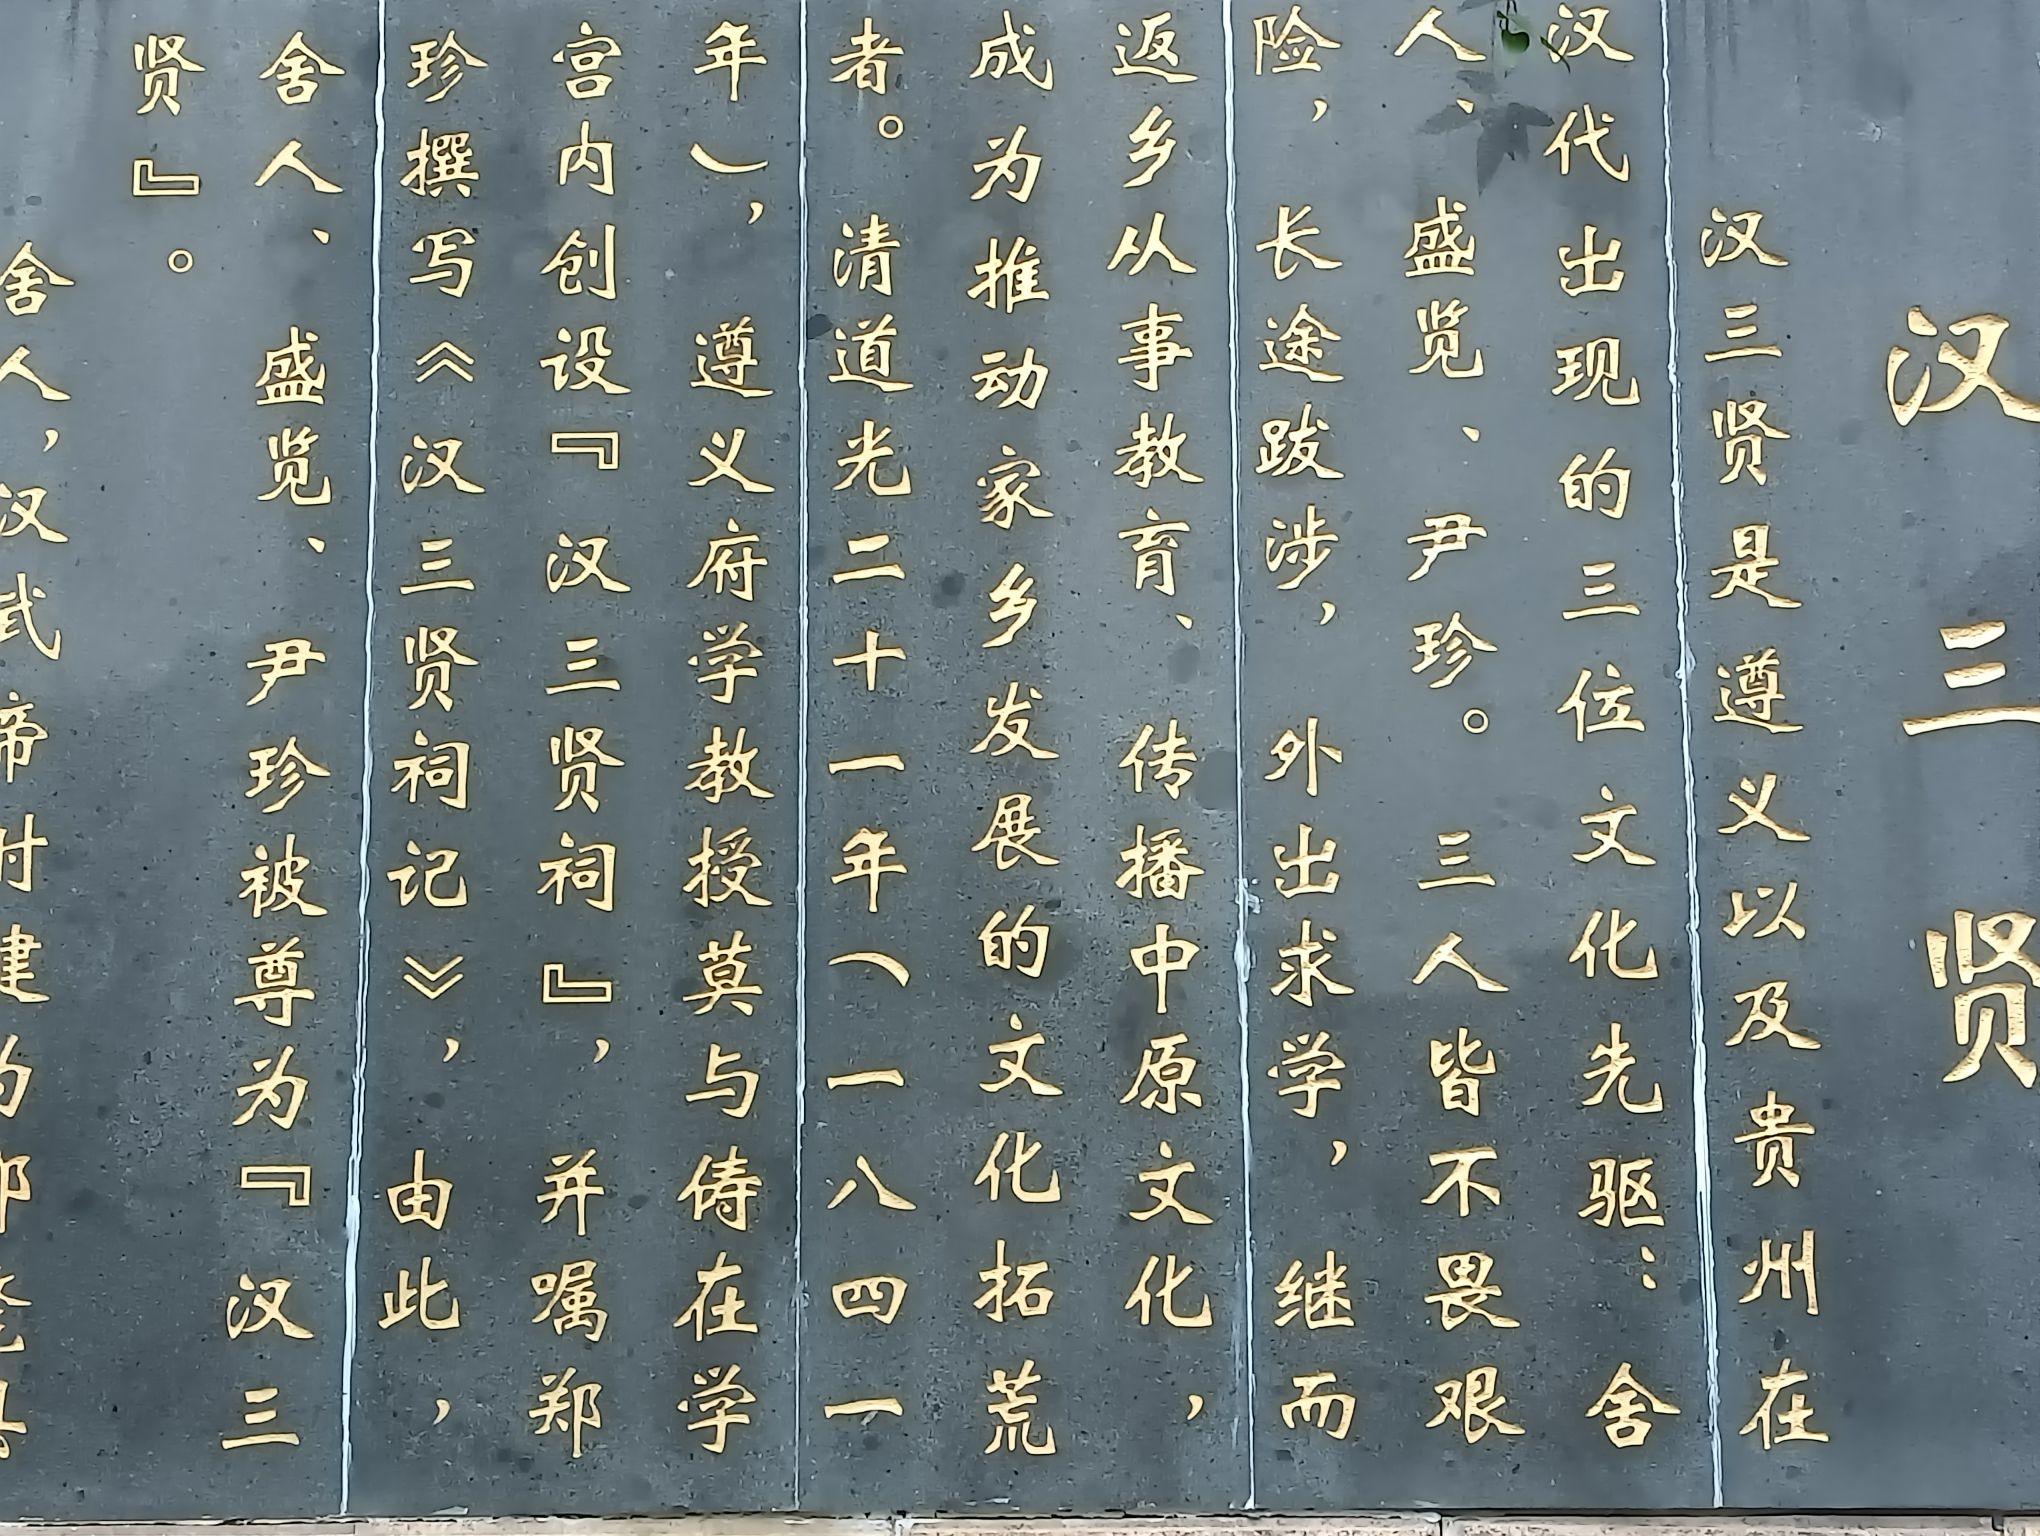 汉三贤
汉三贤是遵义以及贵州在
汉代出现的三位文化先驱：舍
人、盛览、尹珍。三人皆不畏艰
险，长途跋涉，外出求学，继而
返乡从事教育、传播中原文化，
成为推动家乡发展的文化拓荒
者。清道光二十一年（一八四一
年），遵义府学教授莫与俦在学
宫内创设『汉三贤祠』，并嘱郑
珍撰写《汉三贤祠记》，由此，
舍人、盛览、尹珍被尊为『汉三
贤』。
舍人，汉武帝时建为郡